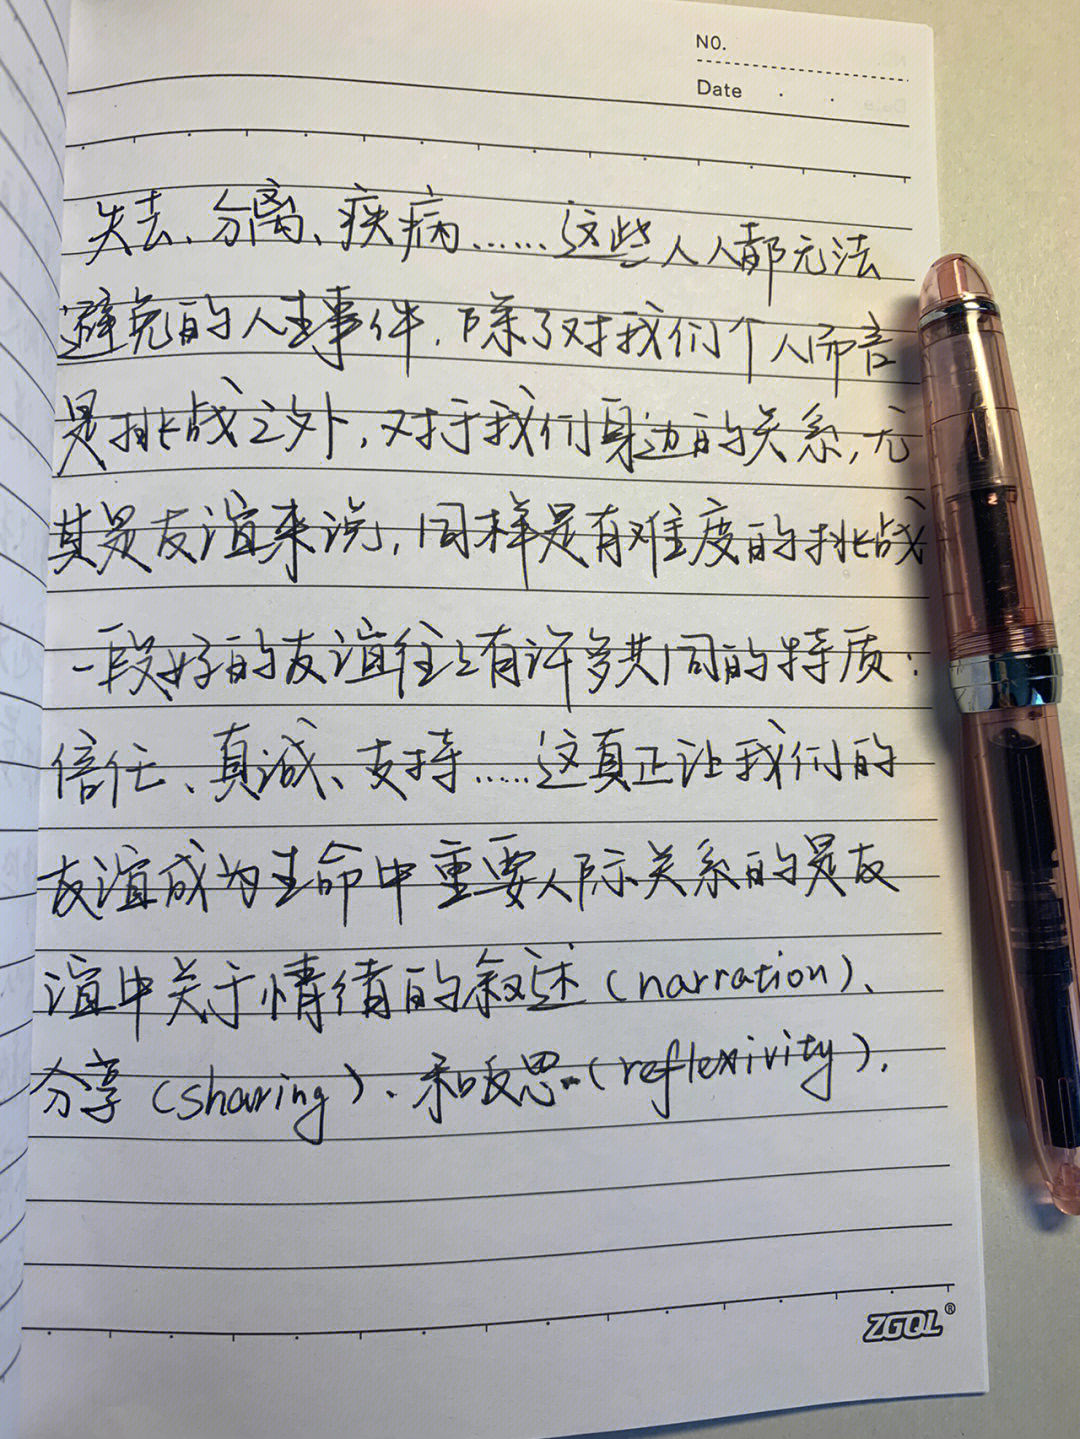 NO.
Date
失去、分离、疾病……这些人人都无法
避免的人生事件,除了对我们个人而言
是挑战之外,对于我们身边的关系,尤
其是友谊来说,同样是有难度的挑战
一段好的友谊往往有许多共同的特质:
信任、真诚、支持……这真正让我们的
友谊成为生命中重要人际关系的是友
谊中关于情绪的叙述(narration)、
分享(sharing)、和反思(reflexivity).
ZGQL®